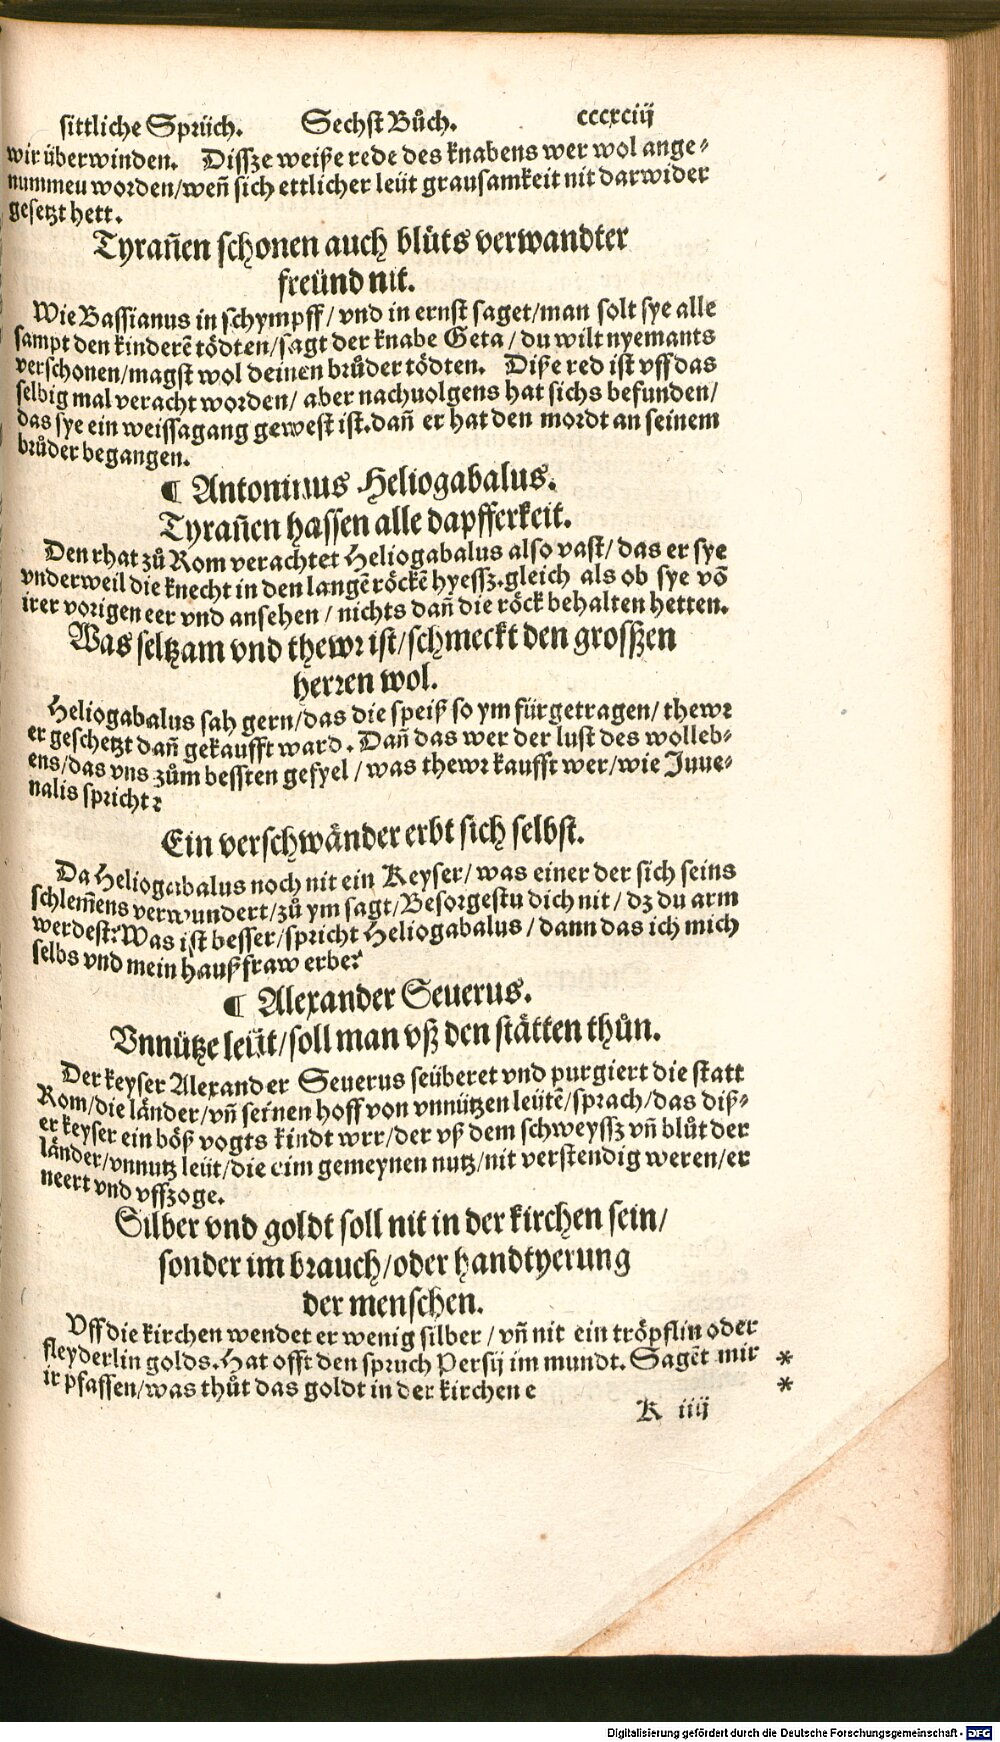 sittliche Sprüch. Sechst Bůch. cccxciij
wir überwinden. Dissze weiße rede des knabens wer wol ange⸗
nummeu worden/weñ sich ettlicher leüt grausamkeit nit darwider
gesetzt hett.
Tyrañen schonen auch blůts verwandter
freünd nit.
Wie Bassianus in schympff/vnd in ernst saget/man solt sye alle
sampt den kinderẽ tödten/sagt der knabe Geta/du wilt nyemants
verschonen/magst wol deinen brůder tödten. Diße red ist vff das
selbig mal veracht worden/aber nachuolgens hat sichs befunden/
das sye ein weissagang gewest ist.dañ er hat den mordt an seinem
brůder begangen.
¶ Antoninus Heliogabalus.
Tyrañen hassen alle dapfferkeit.
Den rhat zů Rom verachtet Heliogabalus also vast/das er sye
vnderweil die knecht in den langẽ röckẽ hyessz.gleich als ob sye võ
irer vorigen eer vnd ansehen/nichts dañ die röck behalten hetten.
Was seltzam vnd thewr ist/schmeckt den grosszen
herren wol.
Heliogabalus sah gern/das die speiß so ym fürgetragen/thewr
er geschetzt dañ gekaufft ward. Dañ das wer der lust des wolleb⸗
ens/das vns zům bessten gefyel/was thewr kaufft wer/wie Juue⸗
nalis spricht:
Ein verschwänder erbt sich selbst.
Da Heliogabalus noch nit ein Keyser/was einer der sich seins
schlem̃ens verwundert/zů ym sagt/Besorgestu dich nit/dz du arm
werdest?Was ist besser/spricht Heliogabalus/dann das ich mich
selbs vnd mein haußfraw erbe?
¶ Alexander Seuerus.
Vnnütze leüt/soll man vß den stätten thůn.
Der keyser Alexander Seuerus seüberet vnd purgiert die statt
Rom/die länder/vñ seinen hoff von vnnützen leütẽ/sprach/das diß⸗
er keyser ein böß vogts kindt wer/der vß dem schweyssz vñ blůt der
länder/vnnutz leüt/die eim gemeynen nutz/nit verstendig weren/er
neert vnd vffzoge.
Silber vnd goldt soll nit in der kirchen sein/
sonder im brauch/oder handtyerung
der menschen.
Vff die kirchen wendet er wenig silber/vñ nit ein tröpflin oder
fleyderlin golds.Hat offt den spruch Persij im mundt. Sagẽt mir *
ir pfaffen/was thůt das goldt in der kirchen e *
K iiij
Digitalisierung gefördert durch die Deutsche Forschungsgemeinschaft - DFG